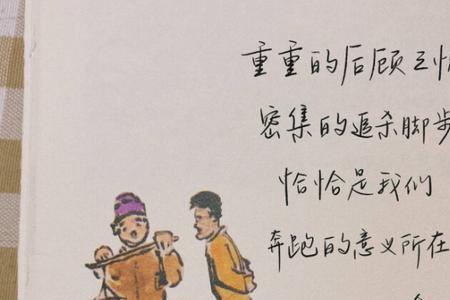 重重的后顾之忧
密集的追杀脚步
恰恰是我们
奔跑的意义所在